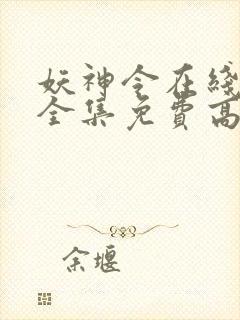 妖神令在线
全集免费高
余堰